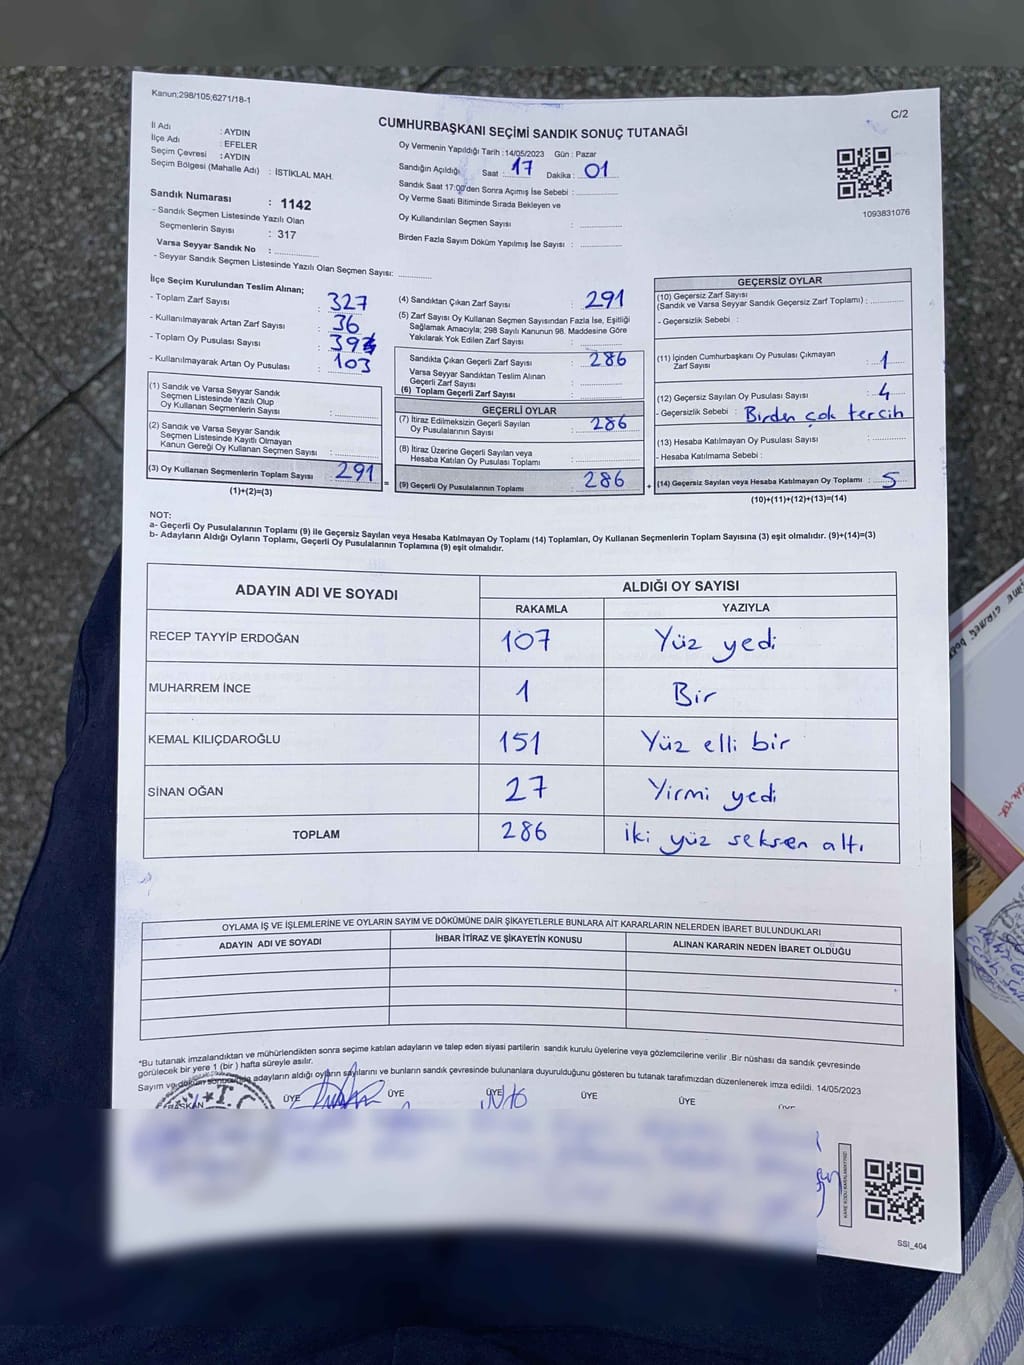 Kanun;298/105,6271/18-1
C/2
CUMHURBAŞKANI SEÇİMİ SANDIK SONUÇ TUTANAĞI
İl Adı : AYDIN
İlçe Adı : EFELER
Seçim Çevresi : AYDIN
Seçim Bölgesi (Mahalle Adı) : İSTİKLAL MAH.
Sandık Numarası : 1142
- Sandık Seçmen Listesinde Yazılı Olan
Seçmenlerin Sayısı : 317
Varsa Seyyar Sandık No :
- Seyyar Sandık Seçmen Listesinde Yazılı Olan Seçmen Sayısı:
Oy Vermenin Yapıldığı Tarih : 14/05/2023 Gün : Pazar
Sandığın Açıldığı Saat : 17 Dakika : 01
Sandık Saat 17:00'den Sonra Açılmış İse Sebebi :
Oy Verme Saati Bitiminde Sırada Bekleyen ve
Oy Kullandırılan Seçmen Sayısı :
Birden Fazla Sayım Döküm Yapılmış İse Sayısı :
1093831076
İlçe Seçim Kurulundan Teslim Alınan;
- Toplam Zarf Sayısı : 327
- Kullanılmayarak Artan Zarf Sayısı : 36
- Toplam Oy Pusulası Sayısı :
- Kullanılmayarak Artan Oy Pusulası : 103
(1) Sandık ve Varsa Seyyar Sandık
Seçmen Listesinde Yazılı Olup
Oy Kullanan Seçmenlerin Sayısı :
(2) Sandık ve Varsa Seyyar Sandık
Seçmen Listesinde Kayıtlı Olmayan
Kanun Gereği Oy Kullanan Seçmen Sayısı :
(3) Oy Kullanan Seçmenlerin Toplam Sayısı : 291
(1)+(2)=(3)
(4) Sandıktan Çıkan Zarf Sayısı : 291
(5) Zarf Sayısı Oy Kullanan Seçmen Sayısından Fazla İse, Eşitliği
Sağlamak Amacıyla; 298 Sayılı Kanunun 98. Maddesine Göre
Yakılarak Yok Edilen Zarf Sayısı :
Sandıkta Çıkan Geçerli Zarf Sayısı : 286
Varsa Seyyar Sandıktan Teslim Alınan
Geçerli Zarf Sayısı :
(6) Toplam Geçerli Zarf Sayısı :
GEÇERLİ OYLAR
(7) İtiraz Edilmeksizin Geçerli Sayılan
Oy Pusulalarının Sayısı : 286
(8) İtiraz Üzerine Geçerli Sayılan veya
Hesaba Katılan Oy Pusulası Toplamı :
(9) Geçerli Oy Pusulalarının Toplamı : 286
GEÇERSİZ OYLAR
(10) Geçersiz Zarf Sayısı
(Sandık ve Varsa Seyyar Sandık Geçersiz Zarf Toplamı) :
- Geçersizlik Sebebi :
(11) İçinden Cumhurbaşkanı Oy Pusulası Çıkmayan
Zarf Sayısı : 1
(12) Geçersiz Sayılan Oy Pusulası Sayısı : 4
- Geçersizlik Sebebi : Birden çok tercih
(13) Hesaba Katılmayan Oy Pusulası Sayısı :
- Hesaba Katılmama Sebebi :
(14) Geçersiz Sayılan veya Hesaba Katılmayan Oy Toplamı : 5
(10)+(11)+(12)+(13)=(14)
NOT:
a- Geçerli Oy Pusulalarının Toplamı (9) ile Geçersiz Sayılan veya Hesaba Katılmayan Oy Toplamı (14) Toplamları, Oy Kullanan Seçmenlerin Toplam Sayısına (3) eşit olmalıdır. (9)+(14)=(3)
b- Adayların Aldığı Oyların Toplamı, Geçerli Oy Pusulalarının Toplamına (9) eşit olmalıdır.
ADAYIN ADI VE SOYADI ALDIĞI OY SAYISI
RAKAMLA YAZIYLA
RECEP TAYYİP ERDOĞAN 107 Yüz yedi
MUHARREM İNCE 1 Bir
KEMAL KILIÇDAROĞLU 151 Yüz elli bir
SİNAN OĞAN 27 Yirmi yedi
TOPLAM 286 iki yüz seksen altı
OYLAMA İŞ VE İŞLEMLERİNE VE OYLARIN SAYIM VE DÖKÜMÜNE DAİR ŞİKAYETLERLE BUNLARA AİT KARARLARIN NELERDEN İBARET BULUNDUKLARI
ADAYIN ADI VE SOYADI İHBAR İTİRAZ VE ŞİKAYETİN KONUSU ALINAN KARARIN NEDEN İBARET OLDUĞU
*Bu tutanak imzalandıktan ve mühürlendikten sonra seçime katılan adayların ve talep eden siyasi partilerin sandık kurulu üyelerine veya gözlemcilerine verilir .Bir nüshası da sandık çevresinde
görülecek bir yere 1 (bir ) hafta süreyle asılır.
Sayım ve döküm sonucunda adayların aldığı oyların sayılarını ve bunların sandık çevresinde bulunanlara duyurulduğunu gösteren bu tutanak tarafımızdan düzenlenerek imza edildi. 14/05/2023
BAŞKAN ÜYE ÜYE ÜYE ÜYE ÜYE
T.C.
SSI_404